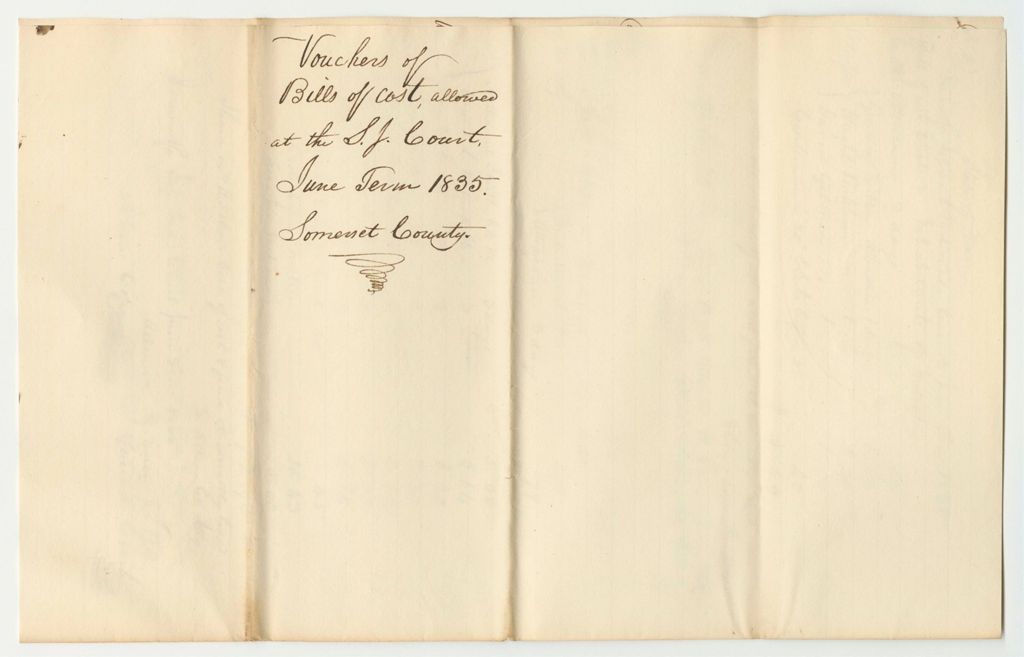 Vouchers of
Bills of cost, allowed
at the S. J. Court,
June Term 1835.
Somerset County.